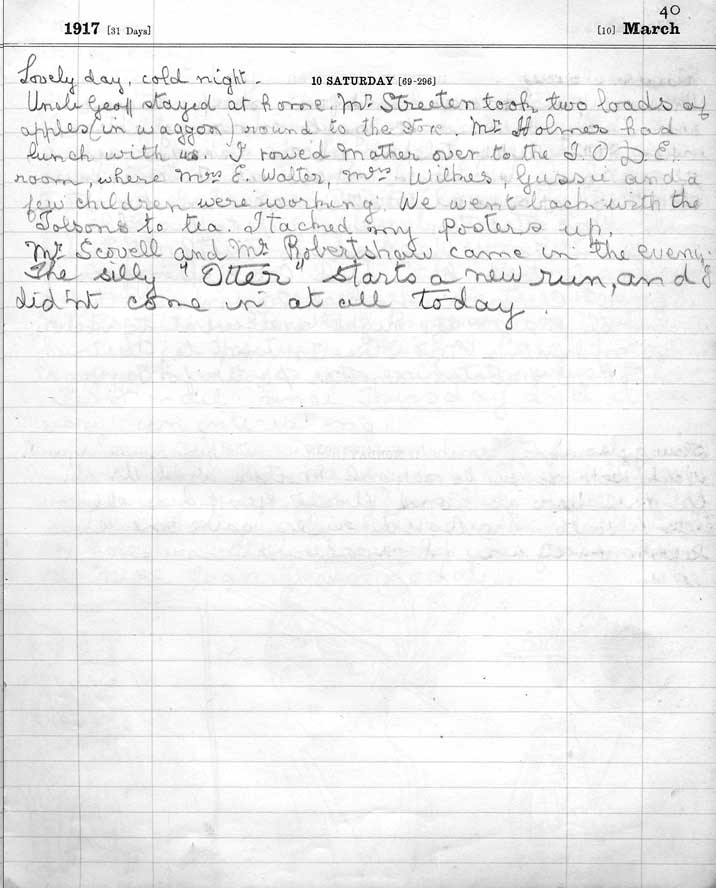 40
1917 [31 Days] [10] March
Lovely day, cold night. 10 SATURDAY [69-296]
Uncle Geoff stayed at home. Mr Streeten took two loads of
apples (in waggon) round to the store. Mr Holmes had
lunch with us. I rowed Mother over to the I O D E
room, where Mrs E. Walter, Mrs Wilkes, Gussie and a
few children were working. We went back with the
Tolsons to tea. I tacked my posters up.
Mr Scovell and Mr Robertshaw came in the eveng.
The silly "Otter" starts a new run, and
did'nt come in at all today.